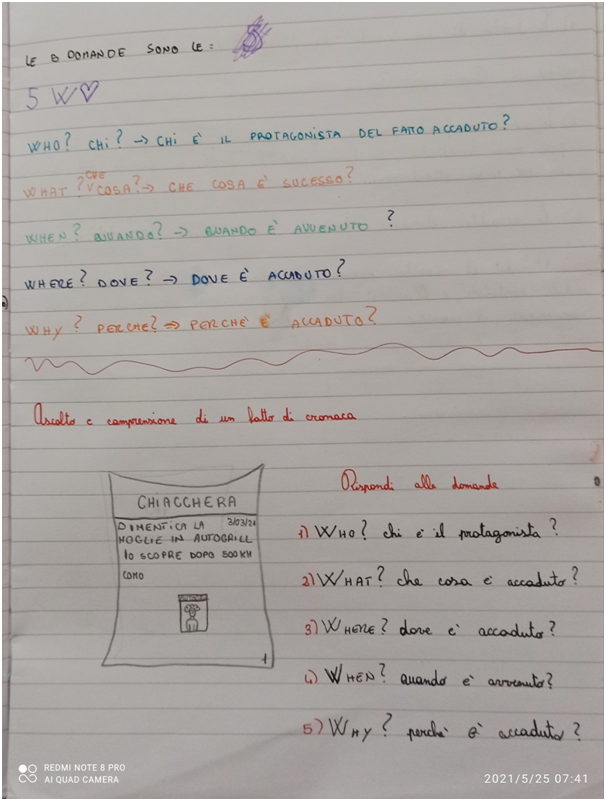 LE 5 DOMANDE SONO LE: 5
5 W
WHO? CHI? → CHI È IL PROTAGONISTA DEL FATTO ACCADUTO?
WHAT? CHE COSA? → CHE COSA È SUCESSO?
WHEN? QUANDO? → QUANDO È AVVENUTO ?
WHERE? DOVE? → DOVE È ACCADUTO?
WHY? PERCHE? → PERCHÈ È ACCADUTO?
Ascolto e comprensione di un fatto di cronaca
CHIACCHERA
DIMENTICA LA 3/03/21
MOGLIE IN AUTOGRILL
lo SCOPRE DOPO 500 KM
COMO
1
Rispondi alle domande
1) WHO? chi è il protagonista?
2) WHAT? che cosa è accaduto?
3) WHERE? dove è accaduto?
4) WHEN? quando è avvenuto?
5) WHY? perchè è accaduto?
REDMI NOTE 8 PRO
AI QUAD CAMERA
2021/5/25 07:41